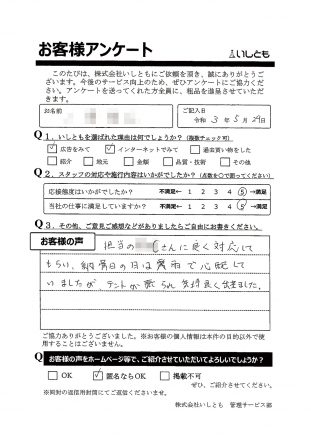 お客様アンケート
いしとも
このたびは、株式会社いしともにご依頼を頂き、誠にありがとうござ
います。今後のサービス向上のため、ぜひアンケートにご協力くだ
さい。アンケートを送ってくれた方全員に、粗品を進呈させていただ
きます。
お名前
様
ご記入日
令和 3年 5月 29日
Q1．いしともを選ばれた理由は何でしょうか？（複数チェック可）
☑ 広告をみて ☑ インターネットでみて □ 過去買い物をした
□ 紹介 □ 地元 □ 金額 □ 品質・技術 □ その他
Q2．スタッフの対応や施行内容はいかがでしたか？（点数を○で囲ってください）
応接態度はいかがでしたか？ 不満足← 1 2 3 4 5 →満足
当社の仕事に満足していますか？ 不満足← 1 2 3 4 5 →満足
Q3．その他、ご意見ご感想などがありましたらご自由にお書きください。
お客様の声
担当の さんに良く対応して
もらい、納骨日の日は
でしたが
テントが
ご協力ありがとうございました。※お客様の個人情報は本件の目的以外で使
用することはございません。
Q お客様の声をホームページ等で、ご紹介させていただいてよろしいでしょうか？
□ OK ☑ 匿名ならOK □ 掲載不可
ぜひ、ご紹介させてください。
※同封の返信用封筒にてご返信くださいませ。
株式会社いしとも 管理サービス部